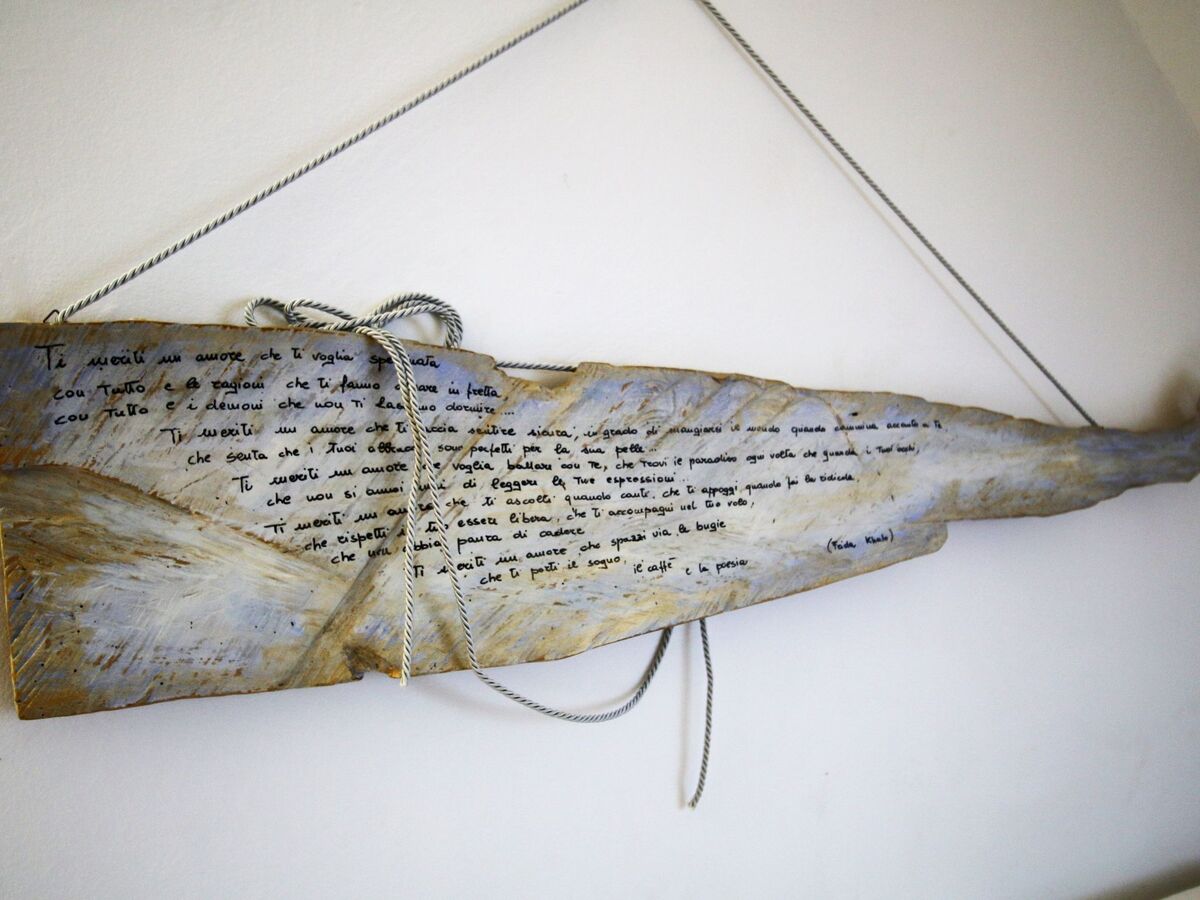 Ti meriti un amore che ti voglia spettinata
con tutto e le ragioni che ti fanno alzare in fretta
con tutto e i demoni che non ti lasciano dormire...
Ti meriti un amore che ti faccia sentire sicura, in grado di mangiarsi il mondo quando cammina accanto a te
che senta che i tuoi abbracci sono perfetti per la sua pelle...
Ti meriti un amore che voglia ballare con te, che trovi il paradiso ogni volta che guarda i tuoi occhi,
che non si annoi mai di leggere le tue espressioni...
Ti meriti un amore che ti ascolti quando canti, che ti appoggi quando fai la ridicola,
che rispetti il tuo essere libera, che ti accompagni nel tuo volo,
che non abbia paura di cadere
Ti meriti un amore che spazzi via le bugie
che ti porti il sogno, il caffè e la poesia
(Frida Khalo)